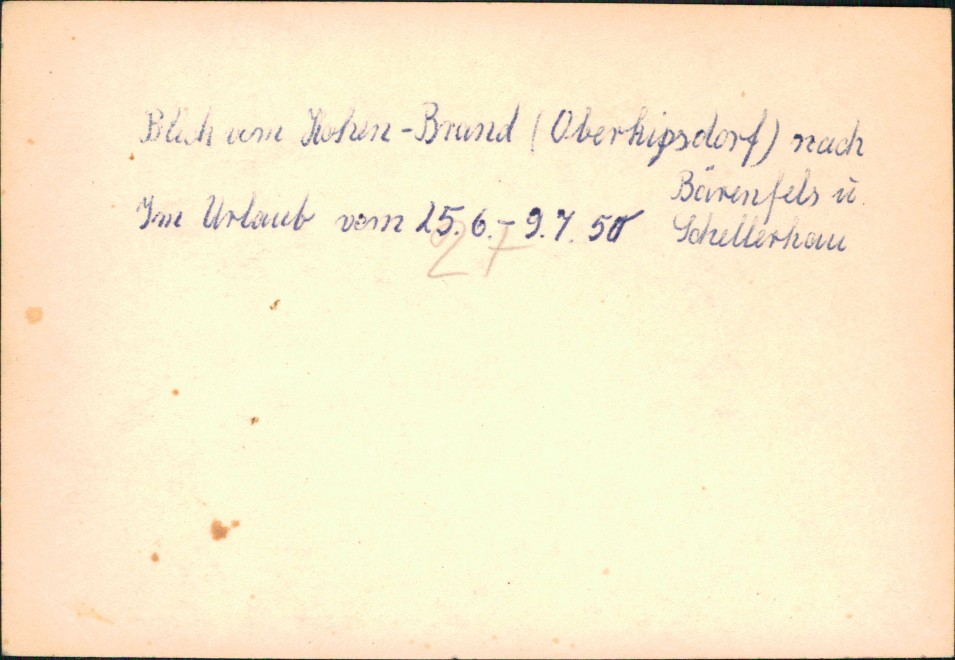 Blick vom Hohen-Brand (Oberkipsdorf) nach
Bärenfels u.
Schellerhau
Im Urlaub vom 25.6.-9.7.50
27